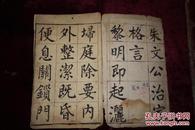 朱文公治家
格言
黎明即起灑
掃庭除要內
外整潔既昏
便息關鎖門